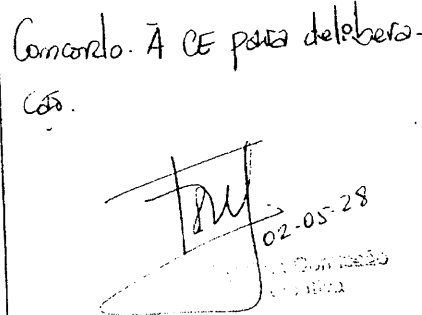 Concordo. À CE para delibera-
ção.
02-05-28